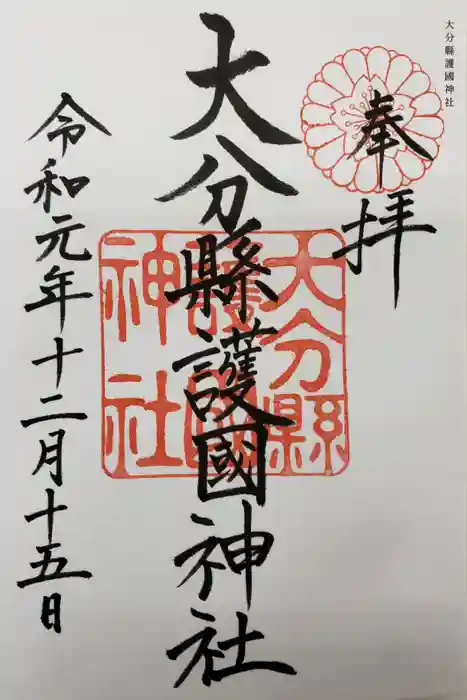 大分縣護國神社
奉拝
大分縣護國神社
大分縣
護國
神社
令和元年十二月十五日